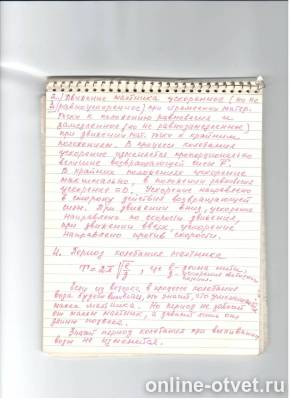 2. Движение маятника ускоренное (но не
равноускоренное) при стремлении матер.
точки к положению равновесия и
замедленное (но не равнозамедленное)
при движении мат. точки к крайним
положениям. В процессе колебания
ускорение изменяется пропорционально
величине возвращающей силы
В крайних положениях ускорение
максимально, в положении равновесия
ускорение = 0. Ускорение направлено
в сторону действия возвращающей
силы. При движении вниз, ускорение
направлено по скорости движения,
при движении вверх, ускорение
направлено против скорости.
4. Период колебания маятника
T = 2π √l/g, где l - длина нити,
g - ускорение
Если из ведерка в процессе колебания
вода будет выливаться, то значит, что уменьшается
масса маятника. Но период не зависит
от массы маятника, а зависит лишь от
длины подвеса.
Значит период колебания при выливании
воды не изменится.
online-otvet.ru